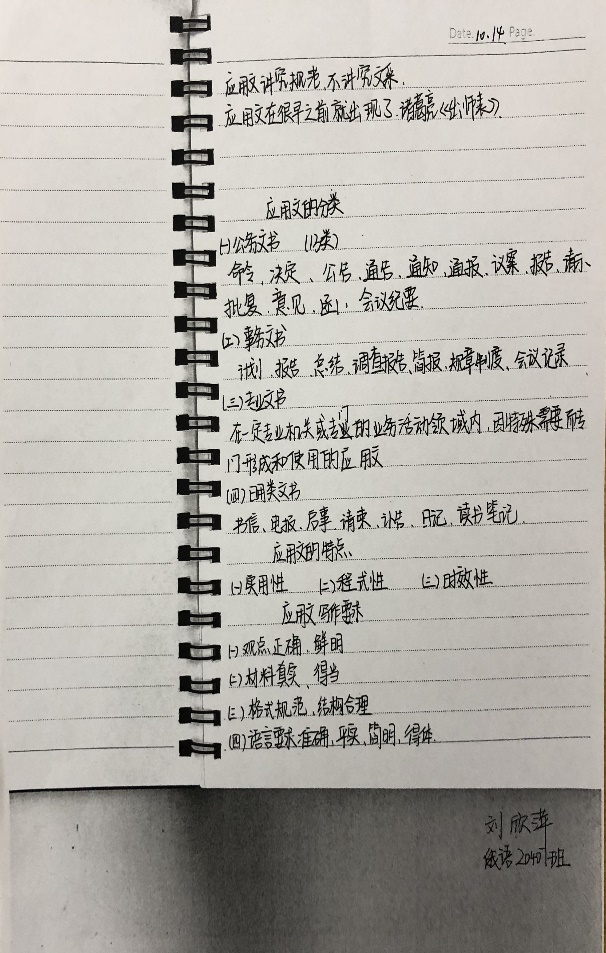 Date. 10.14 Page
应用文讲究规范、不讲究文采.
应用文在很早之前就出现了.诸葛亮《出师表》.
应用文的分类
(一)公务文书 (13类)
命令、决定、公告、通告、通知、通报、议案、报告、请示、
批复、意见、函、会议纪要.
(二)事务文书
计划、报告、总结、调查报告、简报、规章制度、会议记录
(三)专业文书
在一定专业机关或专门的业务活动领域内,因特殊需要而专
门形成和使用的应用文
(四)日用类文书
书信、电报、启事、请柬、讣告、日记、读书笔记.
应用文的特点、
(一)实用性 (二)程式性 (三)时效性
应用文写作要求
(一)观点正确、鲜明
(二)材料真实、得当
(三)格式规范、结构合理
(四)语言要求准确、平实、简明、得体.
刘欣萍
俄语20401班